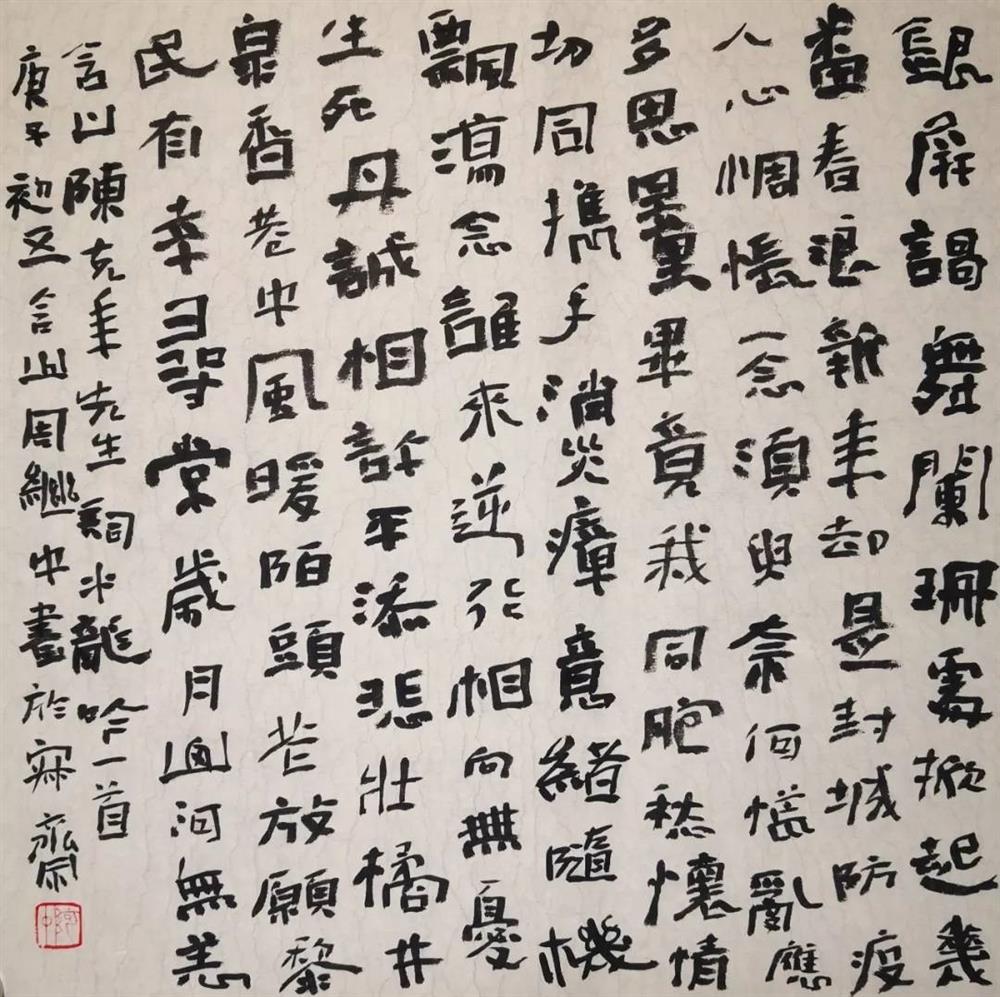 銀屏謌舞闌珊處掀起幾
番春浪新年却是封城防疫
人心惆悵一念須臾奈何慌亂應
多思量畢竟我同胞愁懷情
切同攜手消災瘴意緒隨機
飄蕩念誰來逆行相向無憂
生死丹誠相許平添悲壯橘井
泉香巷中風暖陌頭花放願黎
民有幸尋常歲月山河無恙
含山陳克年先生詞水龍吟一首
庚子初五含山周繼中書於寐齋